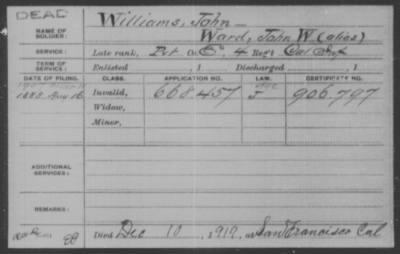 DEAD
NAME OF SOLDIER: Williams, John
Ward, John W (alias)
SERVICE: Late rank, Pvt Co. G, 4 Reg't Cal Inf
TERM OF SERVICE: Enlisted , 1 Discharged , 1
DATE OF FILING. CLASS. APPLICATION NO. LAW. CERTIFICATE NO.
1888 Aug 16 Invalid, 668.457 J 906.797
Widow,
Minor,
ADDITIONAL SERVICES:
REMARKS:
Died Dec 10, 1919, at San Francisco Cal